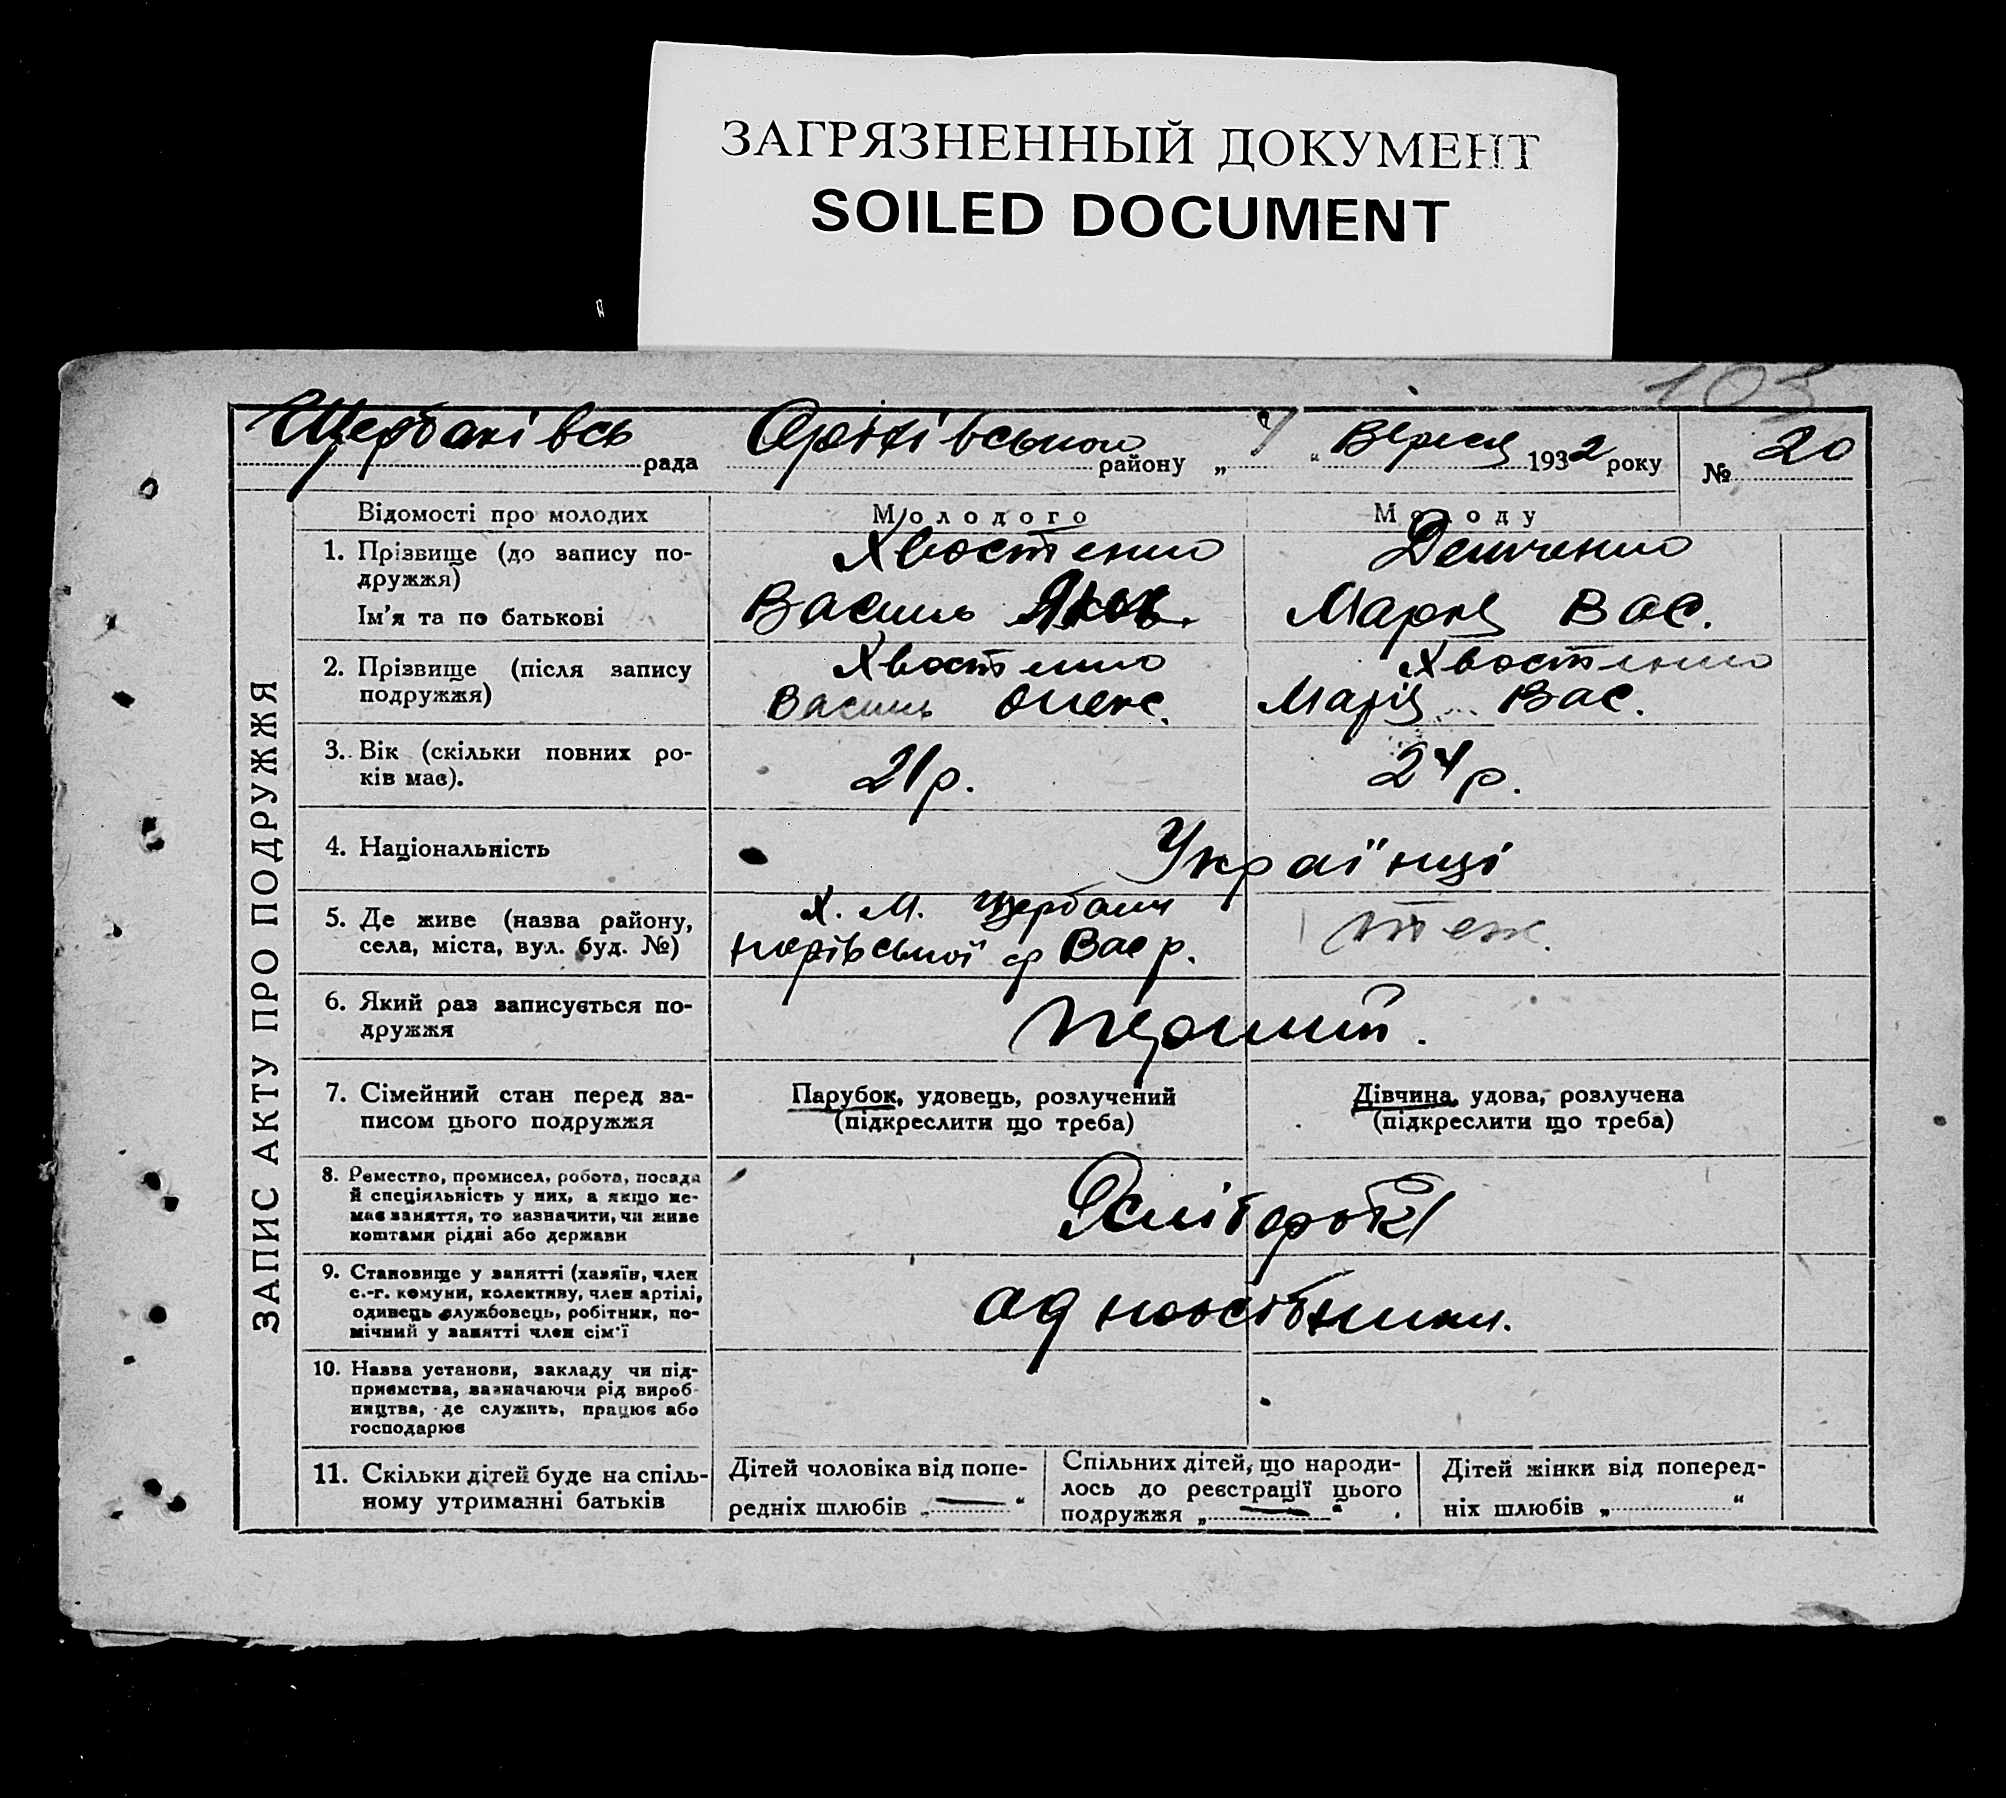 ЗАГРЯЗНЕННЫЙ ДОКУМЕНТ
SOILED DOCUMENT
103
Щербаківсь рада Оріхівського району „ “ Вересня 1932 року № 20
ЗАПИС АКТУ ПРО ПОДРУЖЖЯ
Відомості про молодих
Молодого
Молоду
1. Прізвище (до запису по-
дружжя)
Ім'я та по батькові
Хвостенко
Василь Яков.
Демченко
Марія Вас.
2. Прізвище (після запису
подружжя)
Хвостенко
Василь Олекс.
Хвостенко
Марія Вас.
3. Вік (скільки повних ро-
ків має).
21 р.
24 р.
4. Національність
Українці
5. Де живе (назва району,
села, міста, вул. буд. №)
Х. М. Щербаки
Вас р.
теж.
6. Який раз записується по-
дружжя
перший.
7. Сімейний стан перед за-
писом цього подружжя
Парубок, удовець, розлучений
(підкреслити що треба)
Дівчина, удова, розлучена
(підкреслити що треба)
8. Ремество, промисел, робота, посада
й спеціяльність у них, а якщо не-
має заняття, то зазначити, чи живе
коштами рідні або держави
Хліборобі
9. Становище у занятті (хазяїн, член
с.-г. комуни, колективу, член артілі,
одинець службовець, робітник, по-
мічний у занятті член сім'ї
одноосібники.
10. Назва установи, закладу чи під-
приємства, зазначаючи рід вироб-
ництва, де служить, працює або
господарює
11. Скільки дітей буде на спіль-
ному утриманні батьків
Дітей чоловіка від попе-
редніх шлюбів „ — “
Спільних дітей, що народи-
лось до реєстрації цього
подружжя „ — “
Дітей жінки від поперед-
ніх шлюбів „ “